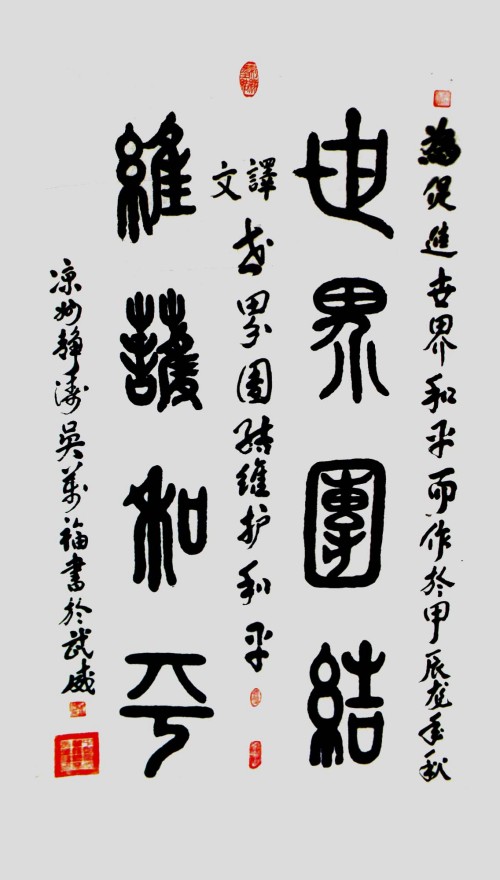 為促進世界和平而作於甲辰龙年秋
世界團結
譯文
世界團結維护和平
維護和平
凉州静涛吳萬福書於武威